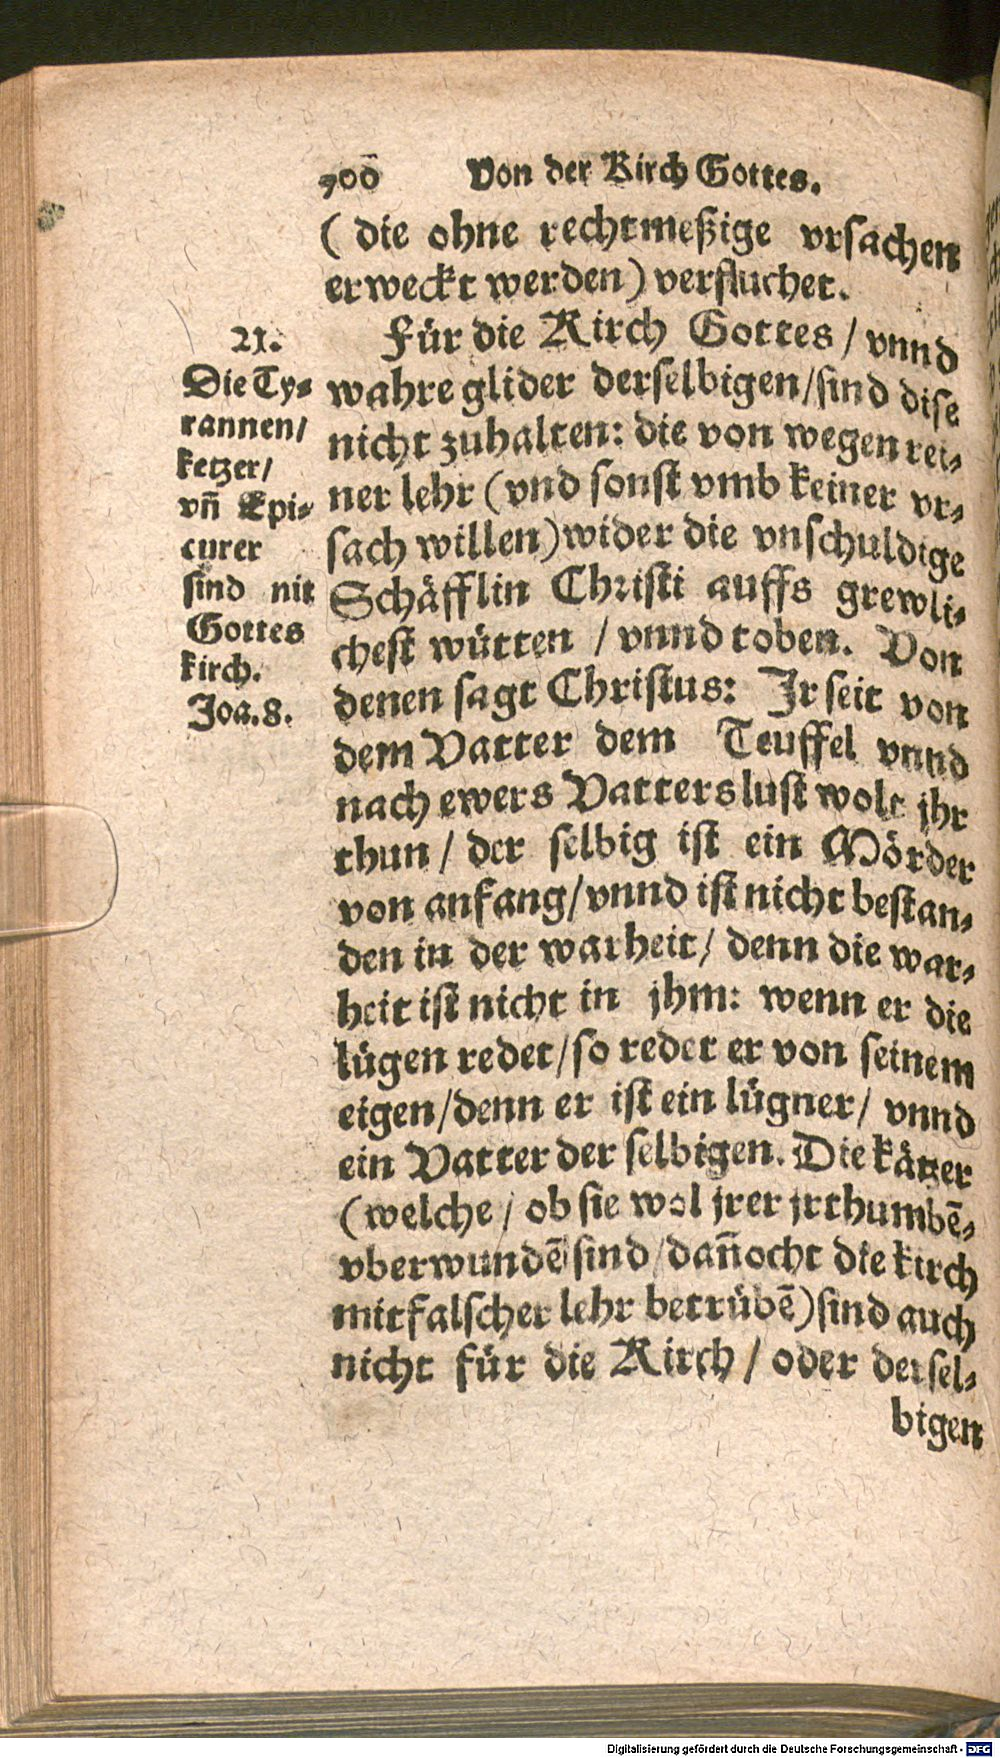 700 Von der Kirch Gottes.
( die ohne rechtmeßige vrsachen
erweckt werden) verfluchet.
Für die Kirch Gottes / vnnd
wahre glider derselbigen/sind dise
nicht zuhalten: die von wegen rei-
ner lehr (vnd sonst vmb keiner vr-
sach willen) wider die vnschuldige
Schäfflin Christi auffs grewli-
chest wütten / vnnd toben. Von
denen sagt Christus: Jr seit von
dem Vatter dem Teuffel vnnd
nach ewers Vatters lust wolt jhr
thun / der selbig ist ein Mörder
von anfang/vnnd ist nicht bestan-
den in der warheit/ denn die war-
heit ist nicht in jhm: wenn er die
lügen redet/so redet er von seinem
eigen/denn er ist ein lügner/ vnnd
ein Vatter der selbigen. Die kätzer
(welche / ob sie wol jrer jrthumbē-
vberwundē sind/dañocht die kirch
mit falscher lehr betrübē) sind auch
nicht für die Kirch / oder dersel-
bigen
21.
Die Ty-
rannen/
ketzer/
vñ Epi-
curer
sind nit
Gottes
kirch.
Joa. 8.
Digitalisierung gefördert durch die Deutsche Forschungsgemeinschaft - DFG